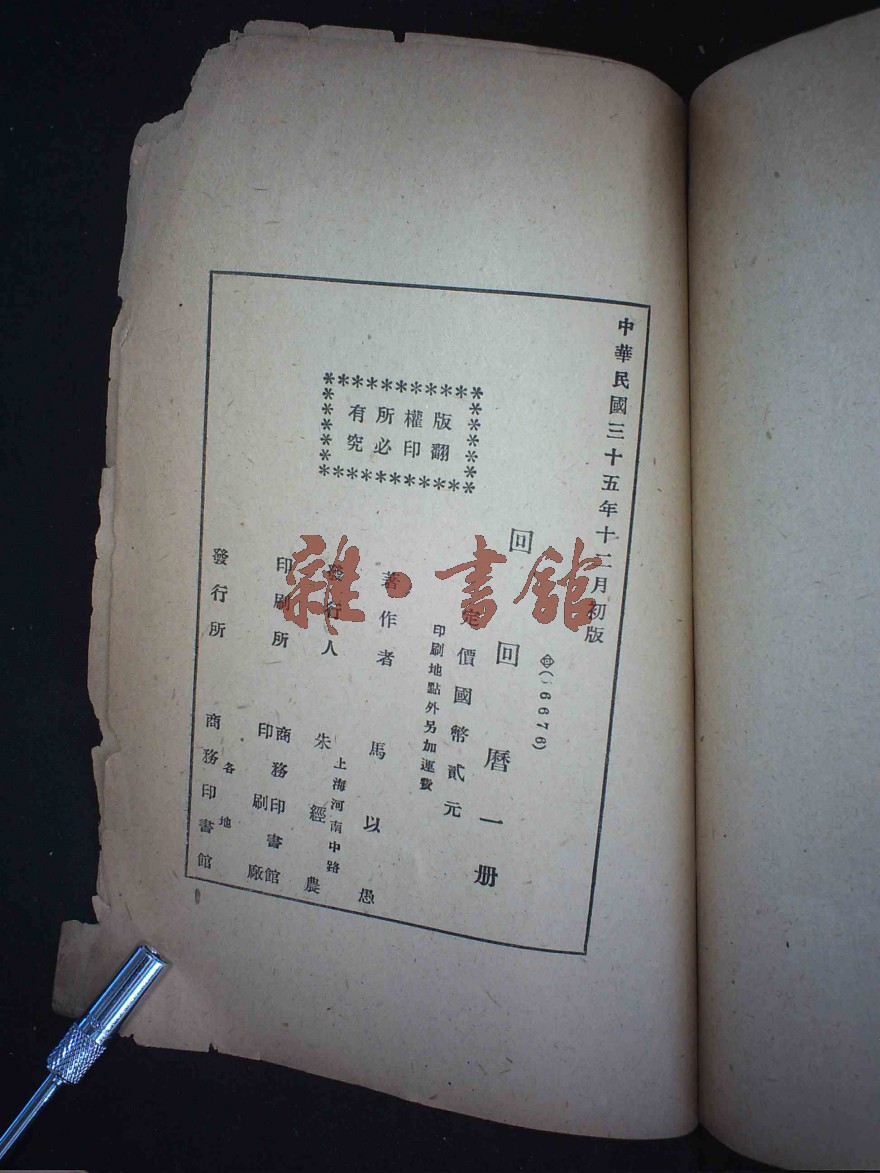 中華民國三十五年十二月初版
(56676)
回回曆一册
定價國幣貳元
印刷地點外另加運費
版權所有
翻印必究
著作者 馬以愚
上海河南中路
發行人 朱經農
印刷所 商務印書館
印刷廠
發行所 各地
商務印書館
雜·書館